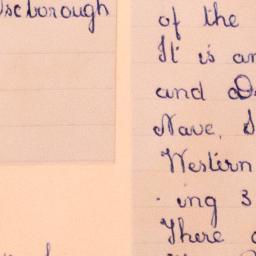 scborough
of the
It is an
and
Nave,
Western
ing 3
There